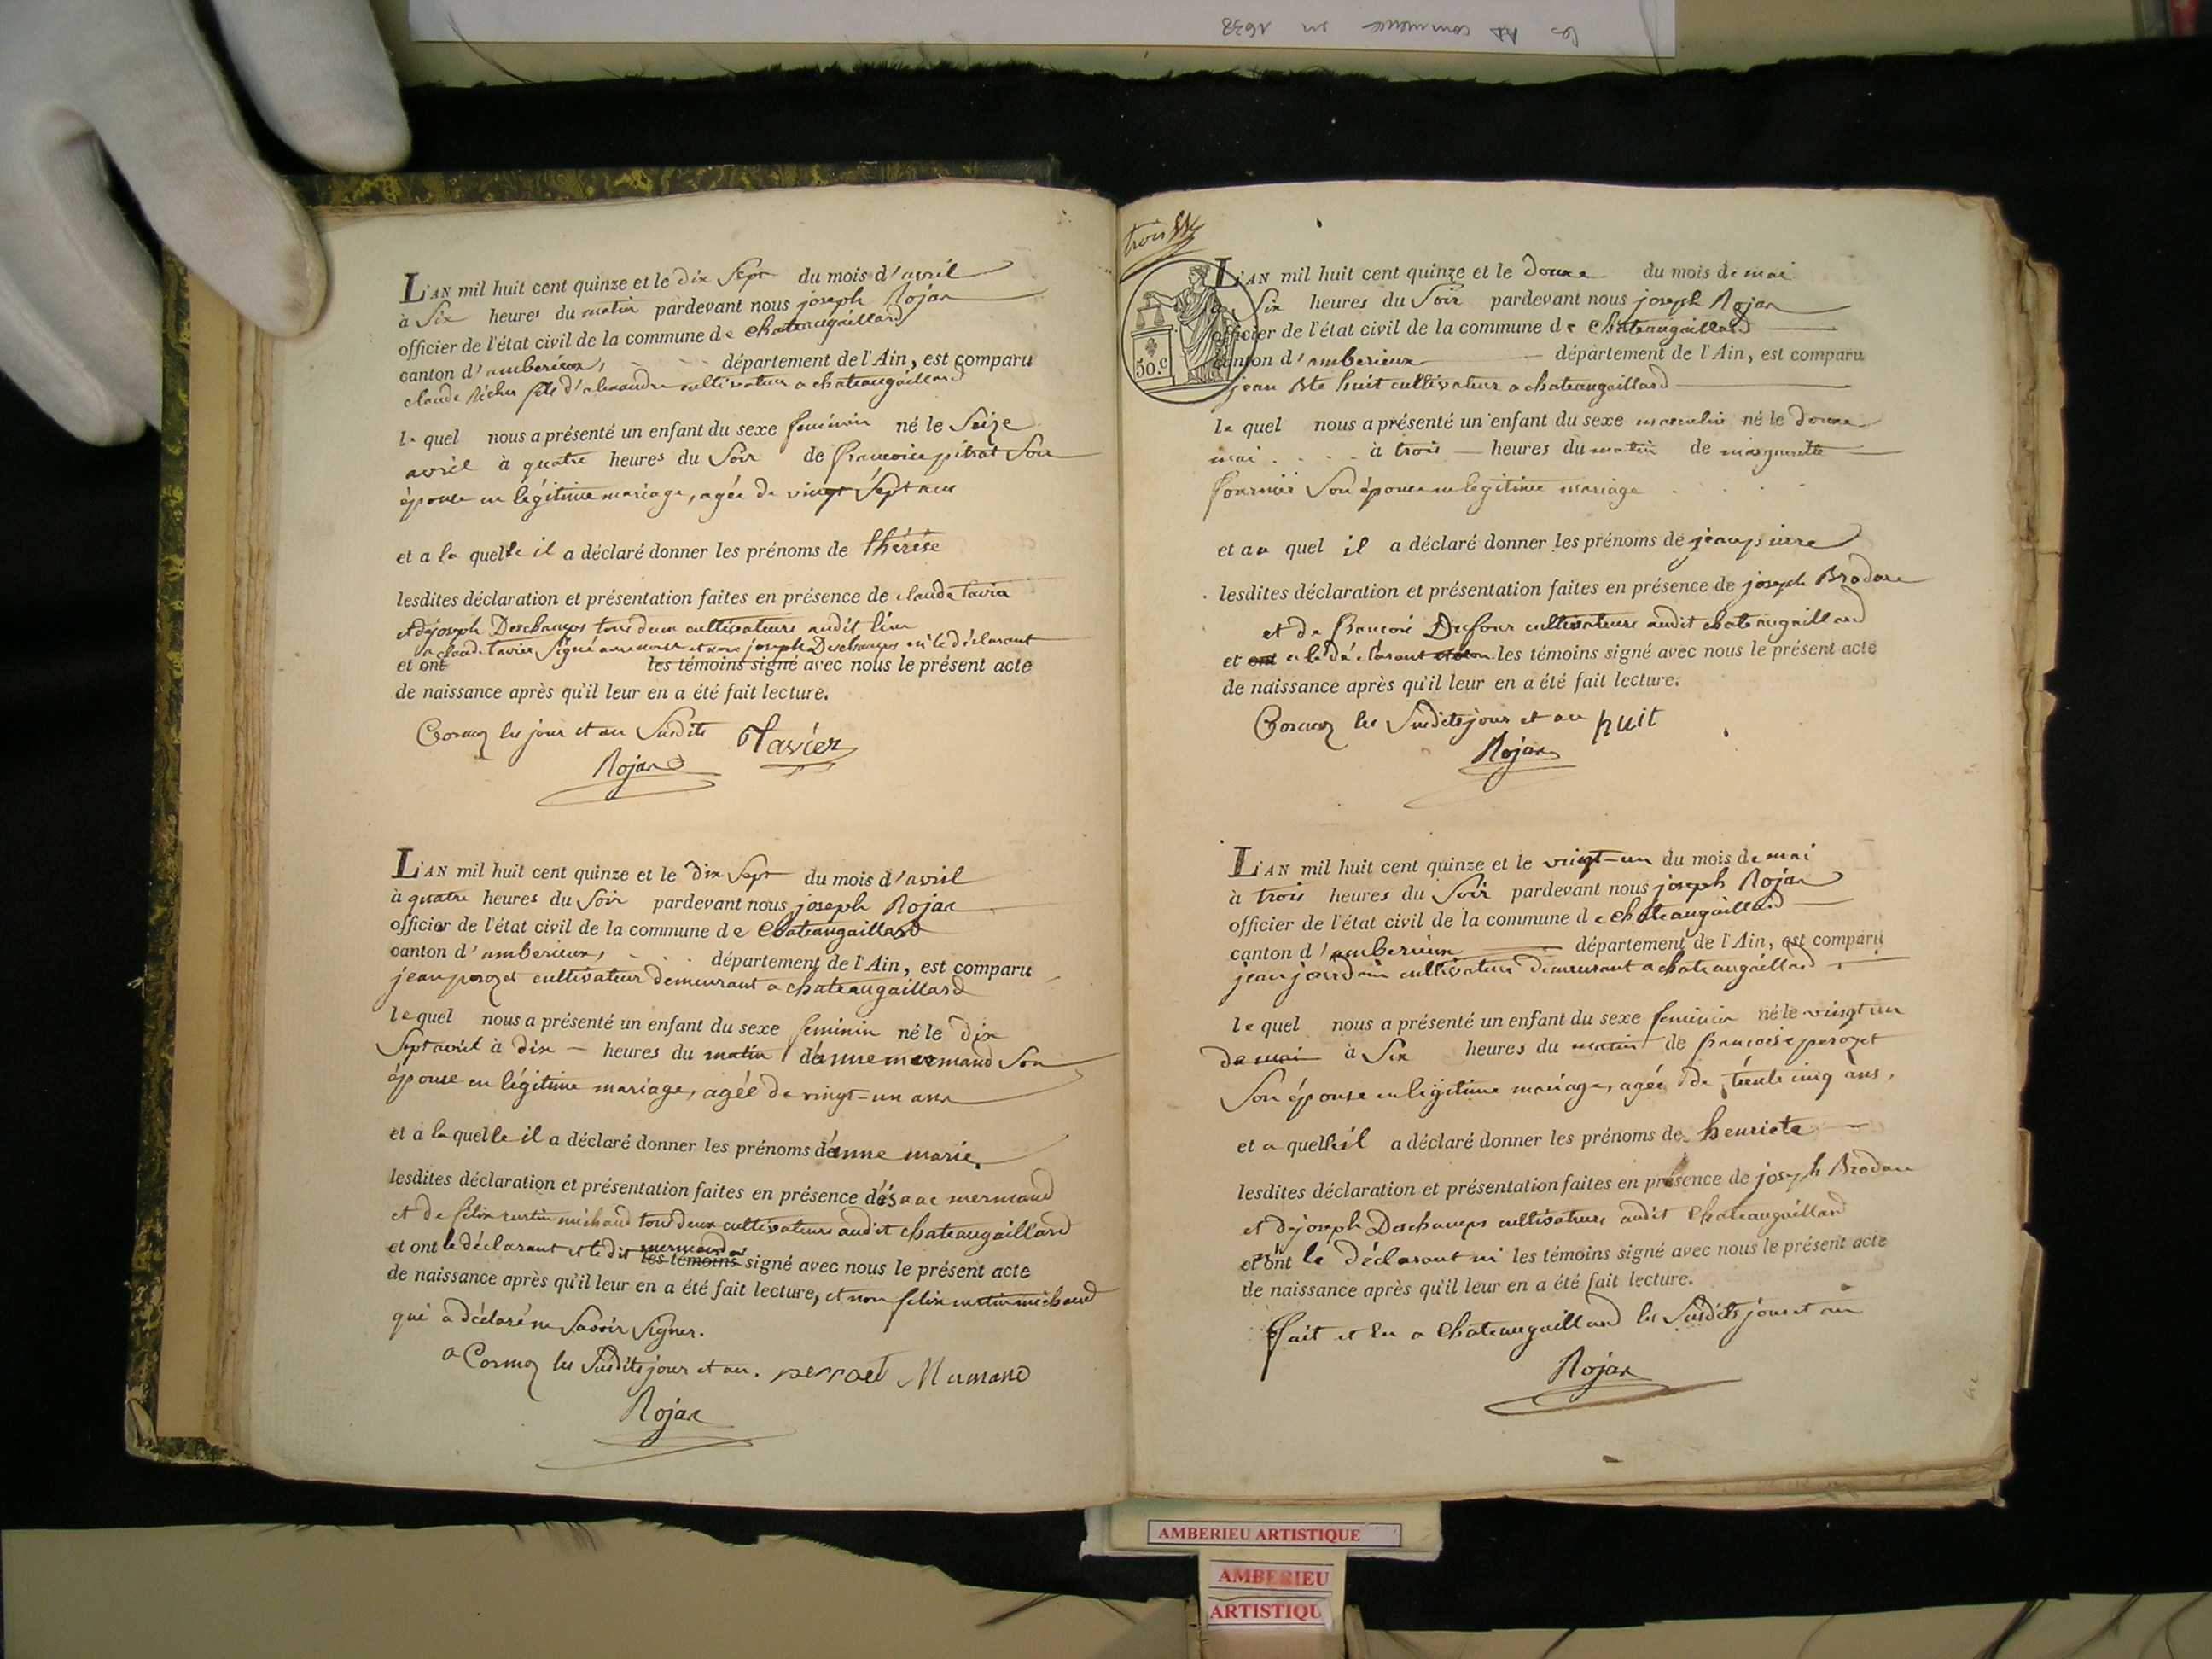 trois
L'AN mil huit cent quinze et le dix Sept du mois d'avril
à Six heures du matin pardevant nous joseph Rojan
officier de l'état civil de la commune de chateaugaillard
canton d'amberieux, département de l'Ain, est comparu
claude fils d'alexandre cultivateur a chateaugaillard
lequel nous a présenté un enfant du sexe feminin né le Seize
avril à quatre heures du Soir de francoise pitrat Son
épouse en légitime mariage, agée de vingt Sept ans
et a la quelle il a déclaré donner les prénoms de thérèse
lesdites déclaration et présentation faites en présence de claude tavier
et de joseph Deschamps tous deux cultivateurs audit lieu
a claude tavier Signé avec nous et non joseph Deschamps ni le déclarant
et ont les témoins signé avec nous le présent acte
de naissance après qu'il leur en a été fait lecture.
Cormoz les jour et an Susdits Tavier
Rojan
L'AN mil huit cent quinze et le dix Sept du mois d'avril
à quatre heures du Soir pardevant nous joseph Rojan
officier de l'état civil de la commune de Chateaugaillard
canton d'amberieux, département de l'Ain, est comparu
jean perozet cultivateur demeurant a chateaugaillard
lequel nous a présenté un enfant du sexe feminin né le dix
Sept avril à dix heures du matin d'anne mermand Son
épouse en légitime mariage, agée de vingt-un ans
et a laquelle il a déclaré donner les prénoms d'anne marie.
lesdites déclaration et présentation faites en présence d'isaac mermand
et de félix michaud tous deux cultivateurs audit chateaugaillard
et ont le déclarant et le dit mermand les témoins signé avec nous le présent acte
de naissance après qu'il leur en a été fait lecture, et non felix michaud
qui a déclaré ne Savoir Signer.
a Cormoz les Susdits jour et an. perroet Mermand
Rojan
L'AN mil huit cent quinze et le douze du mois de mai
à Six heures du Soir pardevant nous joseph Rojan
officier de l'état civil de la commune de Chateaugaillard
canton d'amberieux département de l'Ain, est comparu
50.c
jean Bte huit cultivateur a chateaugaillard
le quel nous a présenté un enfant du sexe masculin né le douze
mai à trois heures du matin de marguerite
fournier Son épouse en legitime mariage
et au quel il a déclaré donner les prénoms de jean pierre
lesdites déclaration et présentation faites en présence de joseph Brodare
et de francois Dufour cultivateurs audit chateaugaillard
et ont a le déclarant les témoins signé avec nous le présent acte
de naissance après qu'il leur en a été fait lecture.
Cormoz les Susdits jour et an huit
Rojan
L'AN mil huit cent quinze et le vingt-un du mois de mai
à trois heures du Soir pardevant nous joseph Rojan
officier de l'état civil de la commune de chateaugaillard
canton d'amberieux département de l'Ain, est comparu
jean jourdain cultivateur demeurant a chateaugaillard
le quel nous a présenté un enfant du sexe feminin né le vingt un
de mai à Six heures du matin de francoise perozet
Son épouse en légitime mariage, agée de trente cinq ans.
et a quelle il a déclaré donner les prénoms de henriete
lesdites déclaration et présentation faites en présence de joseph Brodare
et de joseph Deschamps cultivateurs audit Chateaugaillard
et ont le déclarant ni les témoins signé avec nous le présent acte
de naissance après qu'il leur en a été fait lecture.
fait et lu a Chateaugaillard les Susdits jour et an
Rojan
AMBERIEU ARTISTIQUE
AMBERIEU
ARTISTIQU